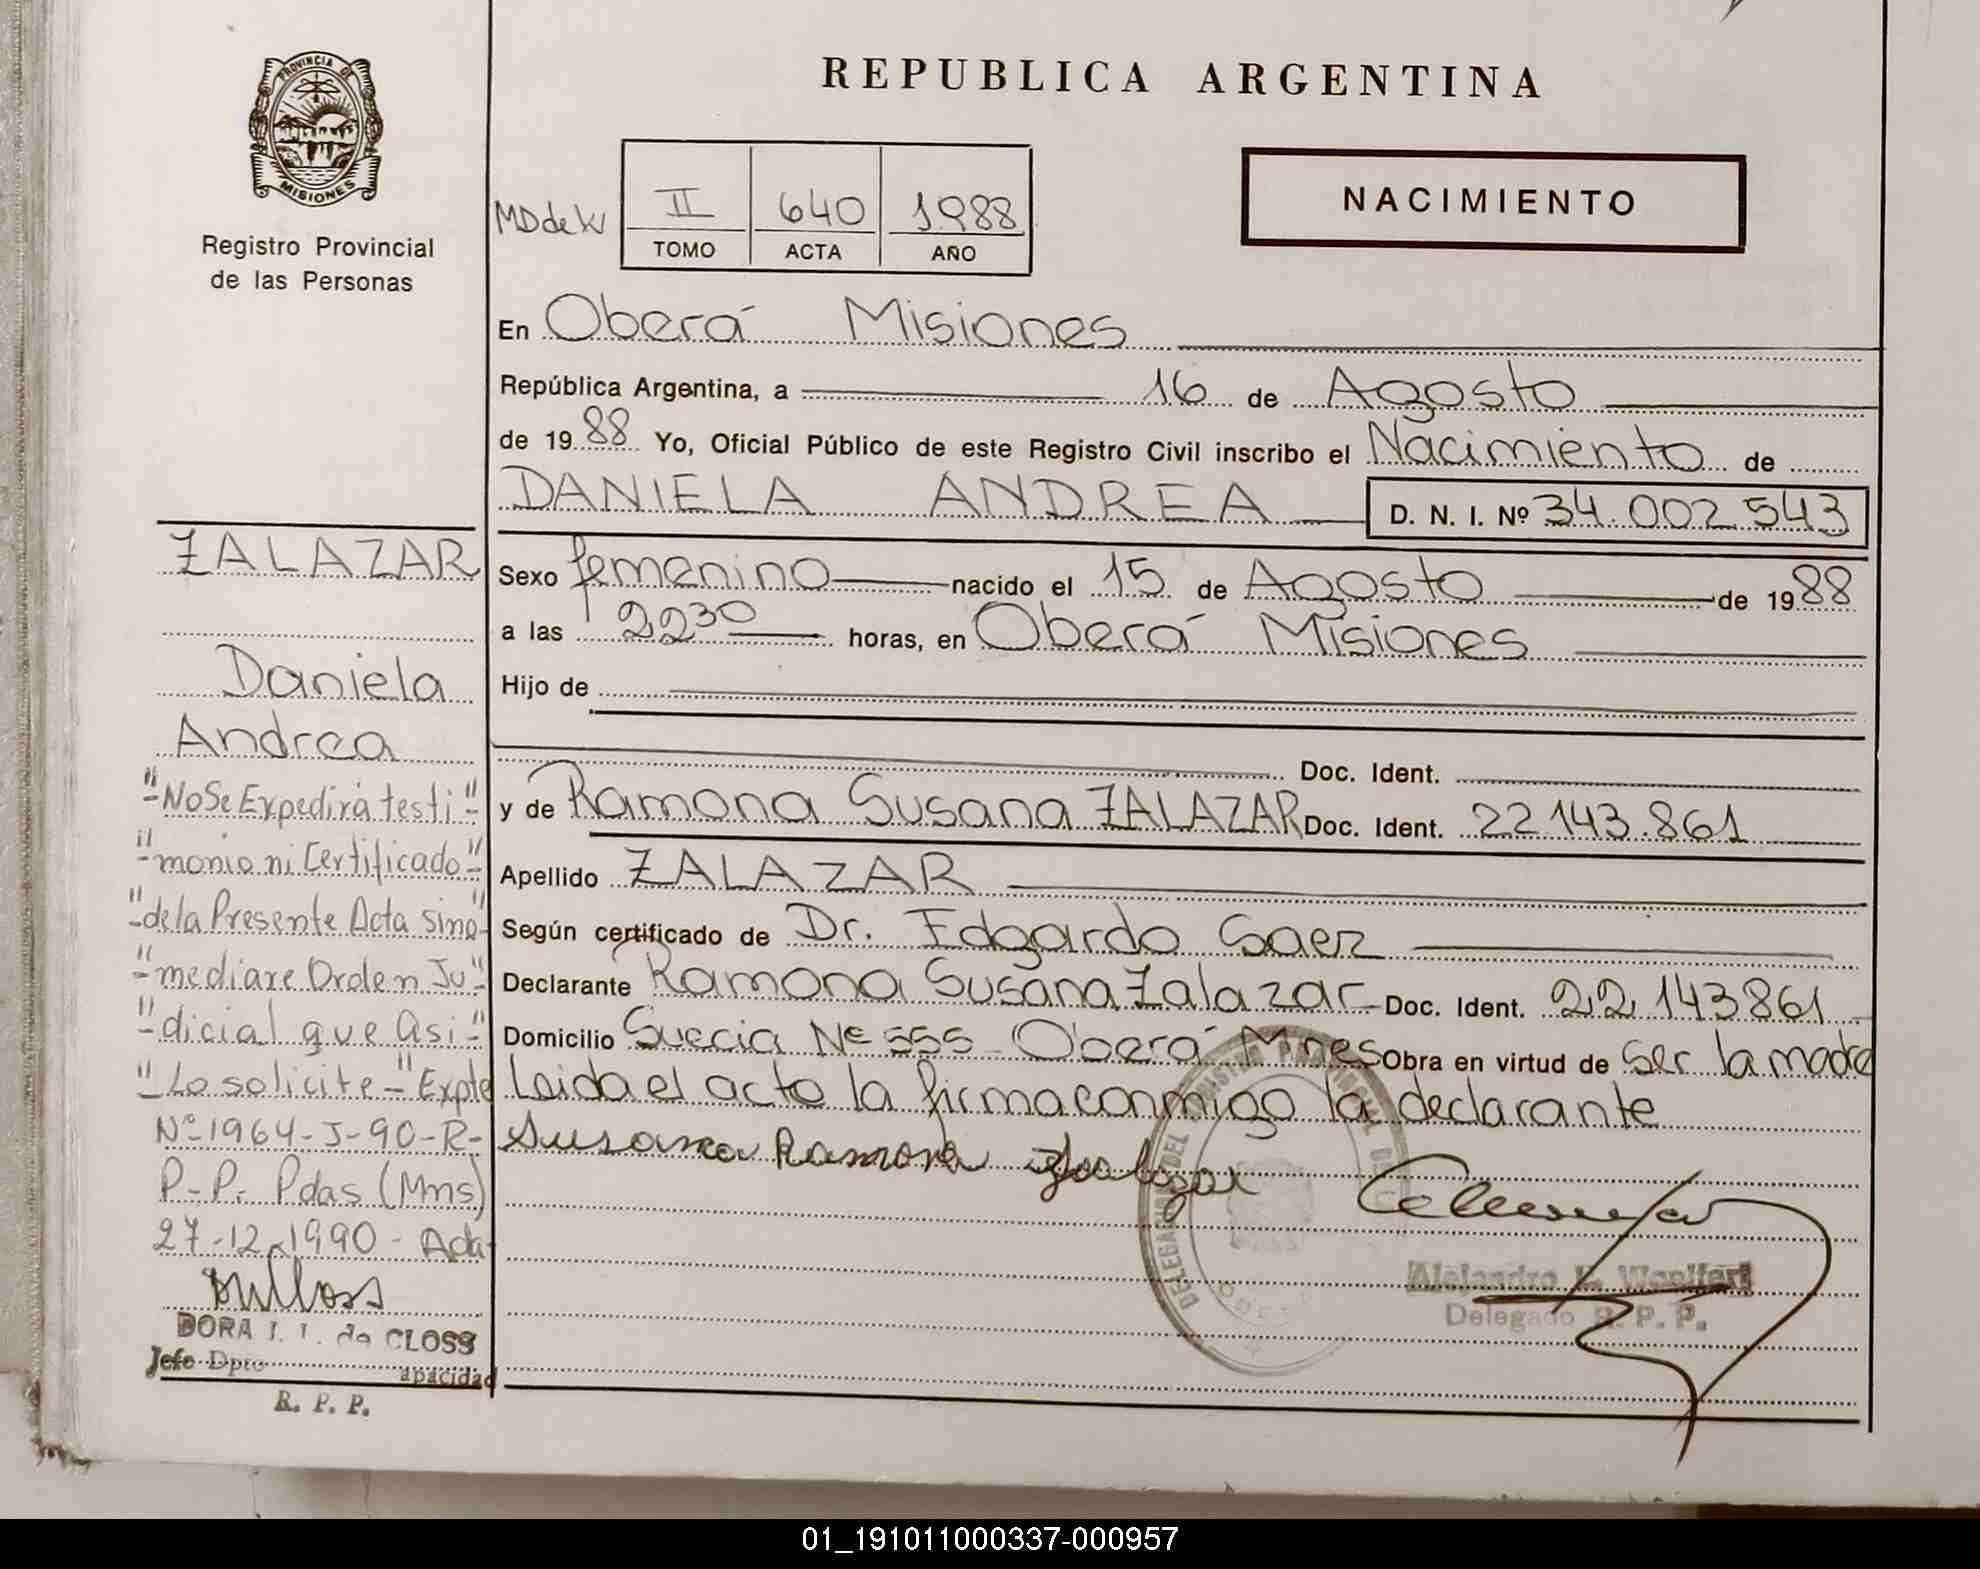 REPUBLICA ARGENTINA
PROVINCIA DE
MISIONES
Registro Provincial
de las Personas
MD de W
II 640 1988
TOMO ACTA AÑO
NACIMIENTO
En Oberá Misiones
República Argentina, a 16 de Agosto
de 1988 Yo, Oficial Público de este Registro Civil inscribo el Nacimiento de
DANIELA ANDREA D. N. I. Nº 34.002.543
Sexo femenino nacido el 15 de Agosto de 1988
a las 22 30 horas, en Oberá Misiones
Hijo de
Doc. Ident.
y de Ramona Susana ZALAZAR Doc. Ident. 22.143.861
Apellido ZALAZAR
Según certificado de Dr. Edgardo Saez
Declarante Ramona Susana Zalazar Doc. Ident. 22.143861
Domicilio Suecia Nº 555 - Oberá Mnes Obra en virtud de Ser la madre
Leida el acto la firma conmigo la declarante
Susana Ramona Zalazar
DELEGACION DEL REGISTRO PROVINCIAL DE
Alejandro
Delegado R. P. P.
ZALAZAR
Daniela
Andrea
"-No Se Expedirá testi"-
"-monio ni Certificado"-
"-de la Presente Acta sino"-
"-mediare Orden Ju"-
"-dicial que Asi"-
"-Lo solicite-" Expte
Nº 1964-J-90-R-
P-P- Pdas (Mns)
27-12-1990-
DORA I. I. de CLOSS
Jefe Dpto apacidad
R. P. P.
01_191011000337-000957